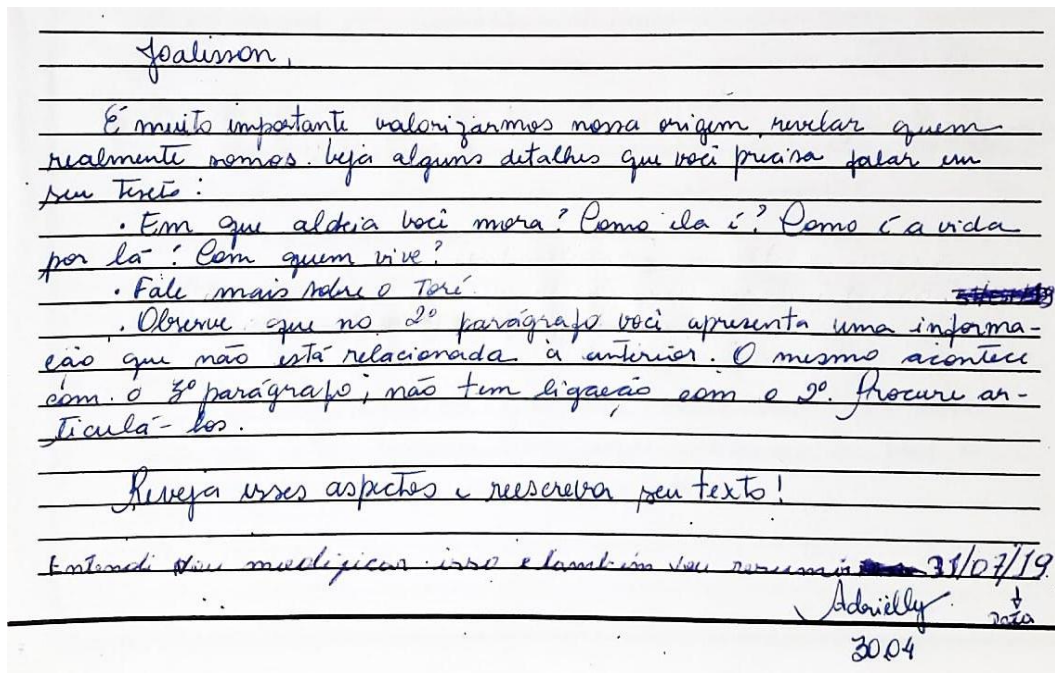 Joalisson,
É muito importante valorizarmos nossa origem, revelar quem
realmente somos. Veja alguns detalhes que você precisa falar em
seu texto:
• Em que aldeia você mora? Como ela é? Como é a vida
por lá? Com quem vive?
• Fale mais sobre o Toré.
• Observe que no 2º parágrafo você apresenta uma informa-
ção que não está relacionada à anterior. O mesmo acontece
com o 3º parágrafo; não tem ligação com o 2º. Procure ar-
ticulá-los.
Reveja esses aspectos e reescreva seu texto!
Entendi vou modificar isso e também vou resumir 31/07/19
Adrielly
Data
30.04